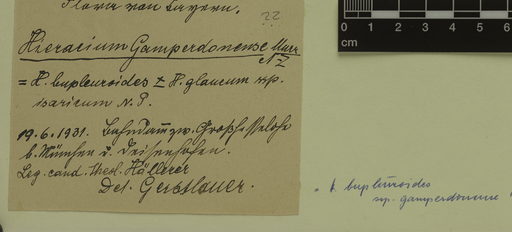 Flora von Bayern.
22
Hieracium Gamperdonense Murr
NZ
= H. bupleuroides ± H. glaucum ssp.
isaricum N. P.
19.6.1931. Bahndamm zw. Großhesselohe
b. München u. Deisenhofen.
Leg. cand. theol. Höllerer
Det. Gerstlauer.
bupleuroides
ssp. gamperdonense
0 1 2 3 4 5 6
cm